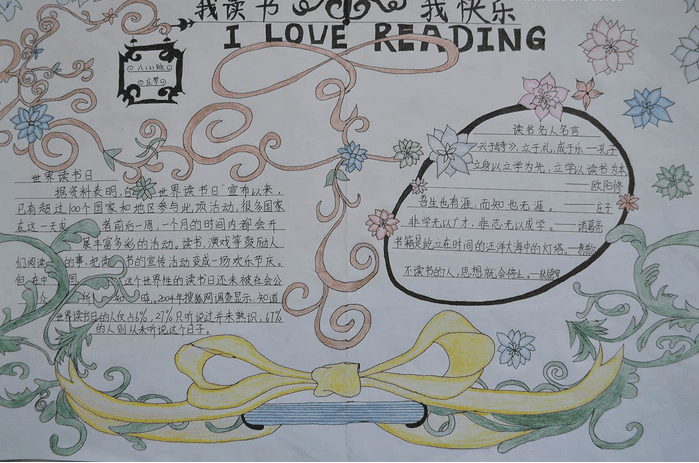 我读书 我快乐
I LOVE READING
八(3)班
世界读书日
据资料表明,自"世界读书日"宣布以来,
已有超过100个国家和地区参与此项活动,很多国家
在这一天或者前后一周,一个月的时间内都会开
展丰富多彩的活动。读书、演戏等鼓励人
们阅读的事,把读书的宣传活动变成一场欢乐节庆。
但在中国,这个世界性的读书日还未被社会公
众所知晓,2004年搜狐网调查显示,知道
世界读书日的人仅占6%,27%只听说过并未熟识,67%
的人则从未听说这个日子。
读书名人名言
兴于诗,立于礼,成于乐——孔子
立身以立学为先,立学以读书为本
——欧阳修
吾生也有涯,而知也无涯。——庄子
非学无以广才,非志无以成学。——诸葛亮
书籍是屹立在时间的汪洋大海中的灯塔。
不读书的人,思想就会停止。